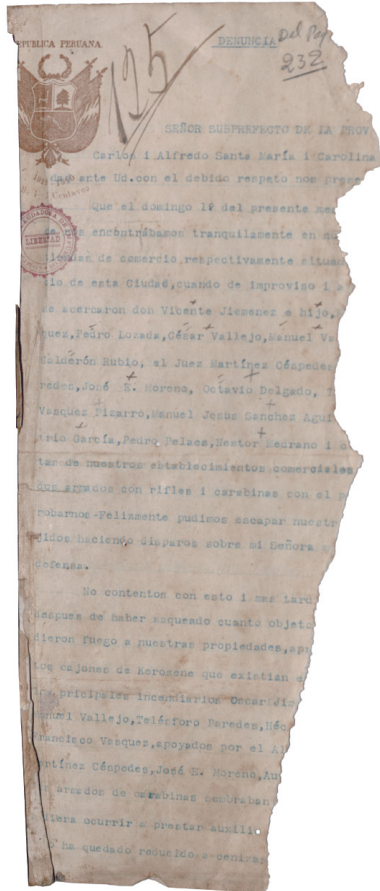 REPUBLICA PERUANA
125
DENUNCIA
Del Pep
232
SEÑOR SUBPREFECTO DE LA PROV
LIBERTAD
Carlos i Alfredo Santa María i Carolina
ante Ud. con el debido respeto nos prese
que el domingo 1º del presente me
encontrábamos tranquilamente en nu
de comercio, respectivamente situa
de esta Ciudad, cuando de improviso i
se acercaron don Vicente Jimenez e hijo,
quez, Pedro Lozada, César Vallejo, Manuel Va
Calderón Rubio, el Juez Martínez Céspedes
redes, José E. Moreno, Octavio Delgado,
Vasquez Pizarro, Manuel Jesus Sanchez Agui
trio García, Pedro Pelaez, Nestor Medrano i o
tas de nuestros establecimientos comerciales
dos armados con rifles i carabinas con el p
robarnos-Felizmente pudimos escapar nuestr
didos haciendo disparos sobre mi Señora
defensa.
No contentos con esto i mas tard
despues de haber saqueado cuanto objeto
dieron fuego a nuestras propiedades,
los cajones de Kerosene que existian e
pricipales incendiarios Oscar
Manuel Vallejo, Telésforo Paredes, Héc
Francisco Vasquez, apoyados por el Al
Martínez Céspedes, José E. Moreno, Au
armados de carabinas
ocurrir a prestar auxili
ha quedado reducido a ceniza